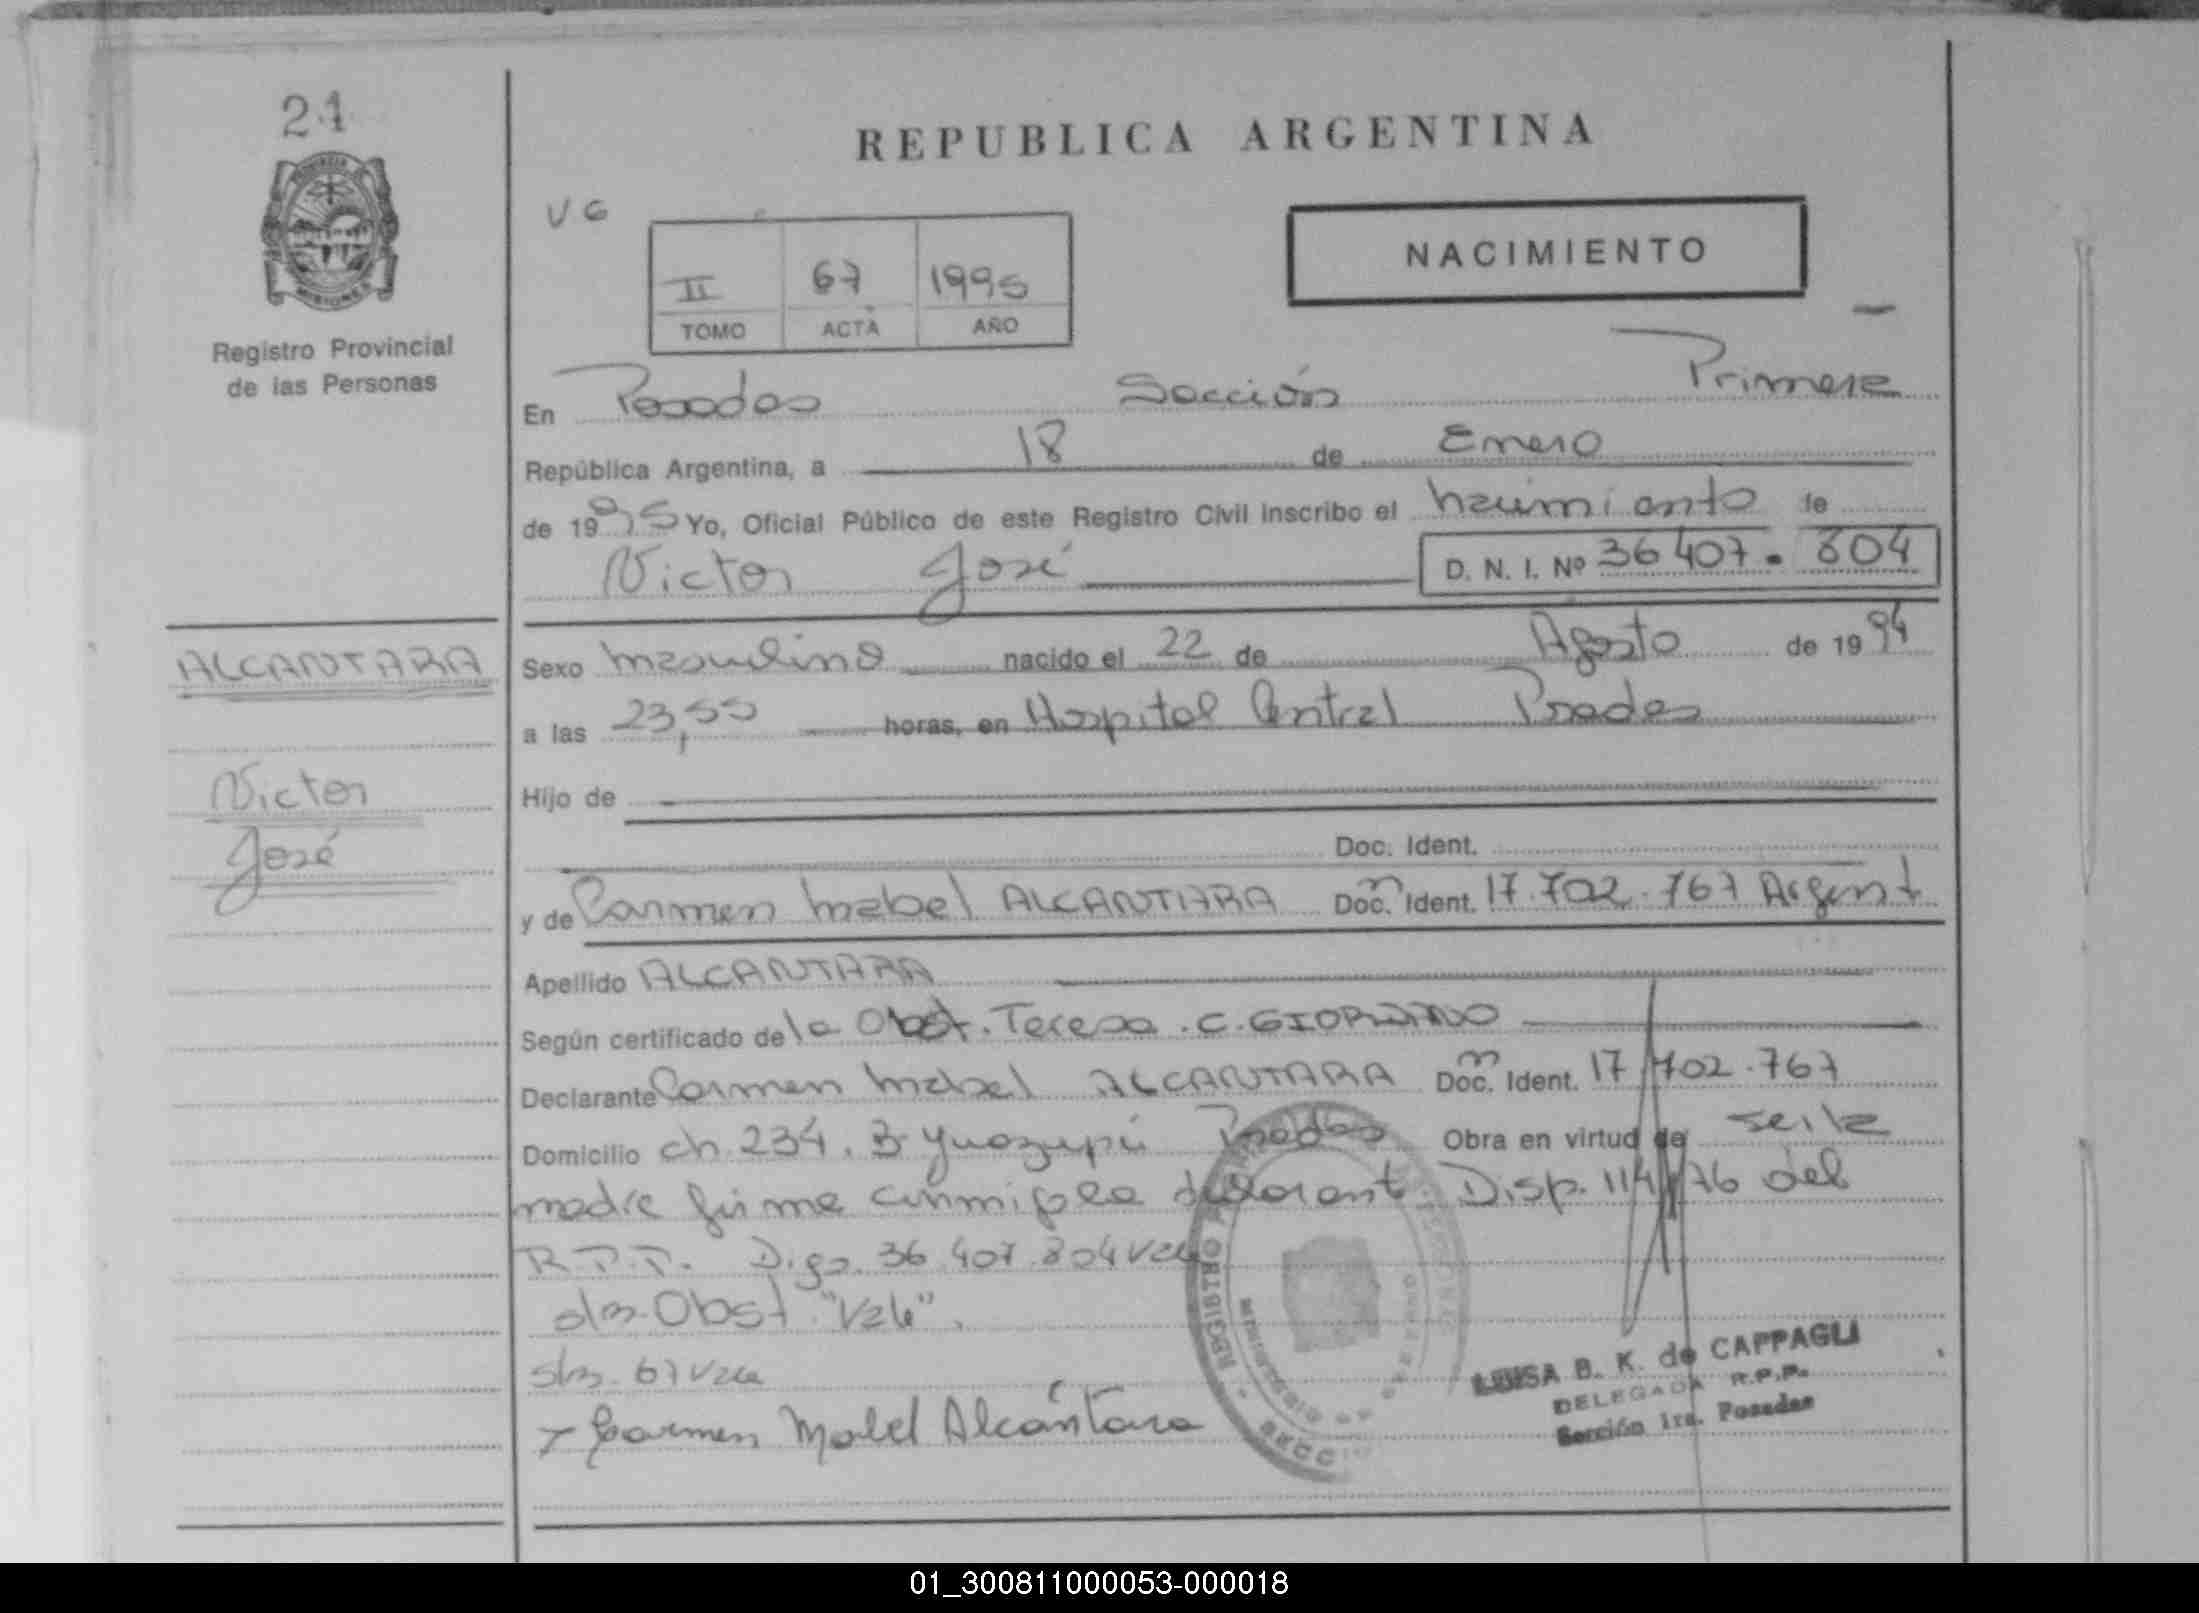 21
REPUBLICA ARGENTINA
PROVINCIA
MISIONES
Registro Provincial
de las Personas
VG
II 67 1995
TOMO ACTA AÑO
NACIMIENTO
En Posadas Sección Primera
República Argentina, a 18 de Enero
de 1995 Yo, Oficial Público de este Registro Civil inscribo el nacimiento de
Victor José D. N. I. Nº 36 407. 804
ALCANTARA
Victor
José
Sexo masculino nacido el 22 de Agosto de 1994
a las 23,55 horas, en Hospital Central Posadas
Hijo de
Doc. Ident.
y de Carmen Mabel ALCANTARA Doc. Ident. 17.702.767 Argent
Apellido ALCANTARA
Según certificado de la Obst. Teresa C. GIORDANO
Declarante Carmen Mabel ALCANTARA Doc. Ident. 17 702.767
Domicilio ch 234. B Yuazupú Posadas Obra en virtud de se i la
madre firma conmigo la declarant Disp. 114/76 del
R.P.P. Digo 36 407 804 Vale
s/r Obst "Vale".
s/r. 67 Vale
Carmen Mabel Alcántara
LUISA B. K. de CAPPAGLI
DELEGADA R.P.P.
Sección 1ra. Posadas
REGISTRO
MINISTERIO
01_300811000053-000018